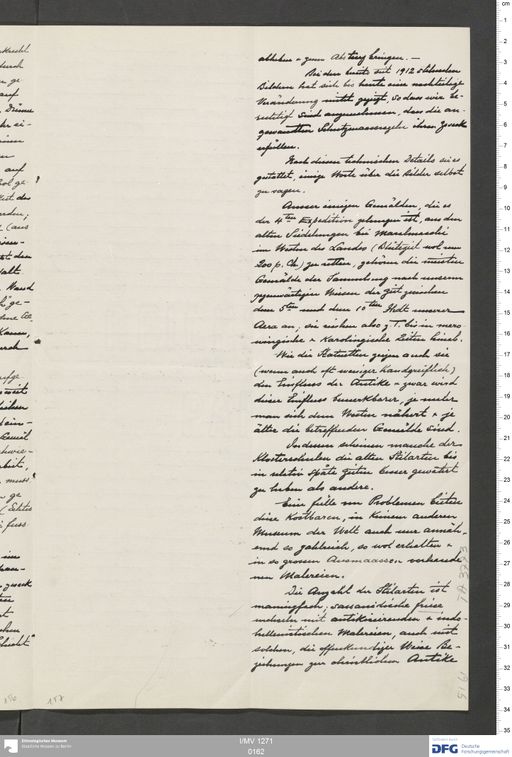 abheben & zum Absturz bringen. —
Bei den bereits seit 1912 stehenden
Bildern hat sich bis heute eine nachteilige
Veränderung nicht gezeigt, so dass wir be-
rechtigt sind anzunehmen, dass die an-
gewandten Schutzmassregeln ihren Zweck
erfüllen.
Nach diesen technischen Details sei es
gestattet, einige Worte über die Bilder selbst
zu sagen.
Ausser einigen Gemälden, die es
der 4ten Expedition gelungen ist, aus den
alten Siedelungen bei Maralbaschi
im Westen des Landes (Blütezeit wol um
200 p. Ch.) zu retten, gehören die meisten
Gemälde der Sammlung nach unserem
gegenwärtigen Wissen der Zeit zwischen
dem 5ten und dem 10ten Jhdt unserer
Aera an, sie reichen also z. T. bis in mero-
wingische & Karolingische Zeiten hinab.
Wie die Statuetten zeigen auch sie
(wenn auch oft weniger handgreiflich)
den Einfluss der Antike & zwar wird
dieser Einfluss bemerkbarer, je mehr
man sich dem Westen nähert & je
älter die betreffenden Gemälde sind.
Indessen scheinen manche der
Klosterschulen die alten Stilarten bis
in relativ späte Zeiten besser gewahrt
zu haben als andere.
Eine Fülle von Problemen bieten
diese Kostbaren, in keinem anderen
Museum der Welt auch nur annäh-
ernd so zahlreich, so wol erhalten &
in so grossen Ausmaassen vorhande-
nen Malereien.
Die Anzahl der Stilarten ist
mannigfach, sassanidische Friese
wechseln mit antikisierenden & indo-
hellenistischen Malereien, auch mit
solchen, die offenkundiger Weise Be-
ziehungen zur christlichen Antike
TA 3773
156
157
I/MV 1271
0162
Ethnologisches Museum
Staatliche Museen zu Berlin
Gefördert durch
DFG Deutsche
Forschungsgemeinschaft